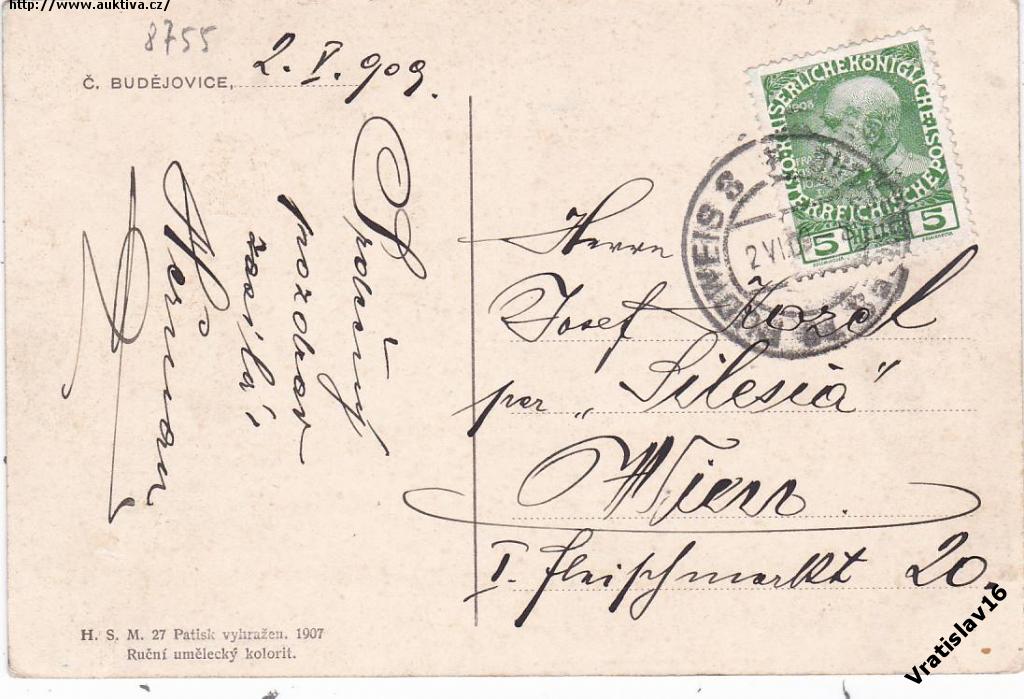 http://www.auktiva.cz/
8755
Č. BUDĚJOVICE, 2. V. 909.
Srdečný
pozdrav
zasílá
Heřman
KAISERLICHE KÖNIGLICHE ÖSTERREICHISCHE
1908
5 5
BUDWEIS 3
2 VI
Herrn
Josef Kozel
per „Silesia“
Wien.
I. Fleischmarkt 20.
H. S. M. 27 Patisk vyhražen. 1907
Ruční umělecký kolorit.
Vratislav16